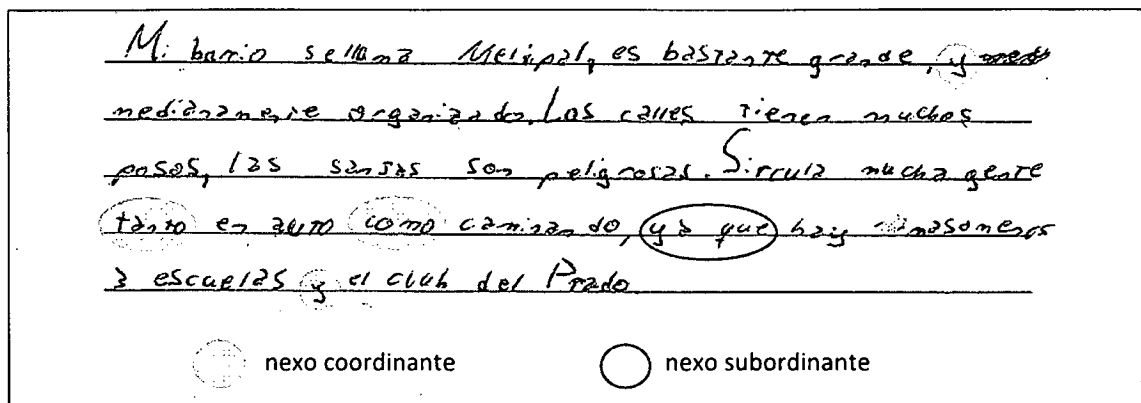 Mi barrio se llama Melipal, es bastante grande, y
medianamente organizado. Las calles tienen muchos
posos, las sansas son peligrosas. Sircula mucha gente
tanto en auto como caminando, ya que hay masomenos
3 escuelas y el club del Prado
nexo coordinante nexo subordinante